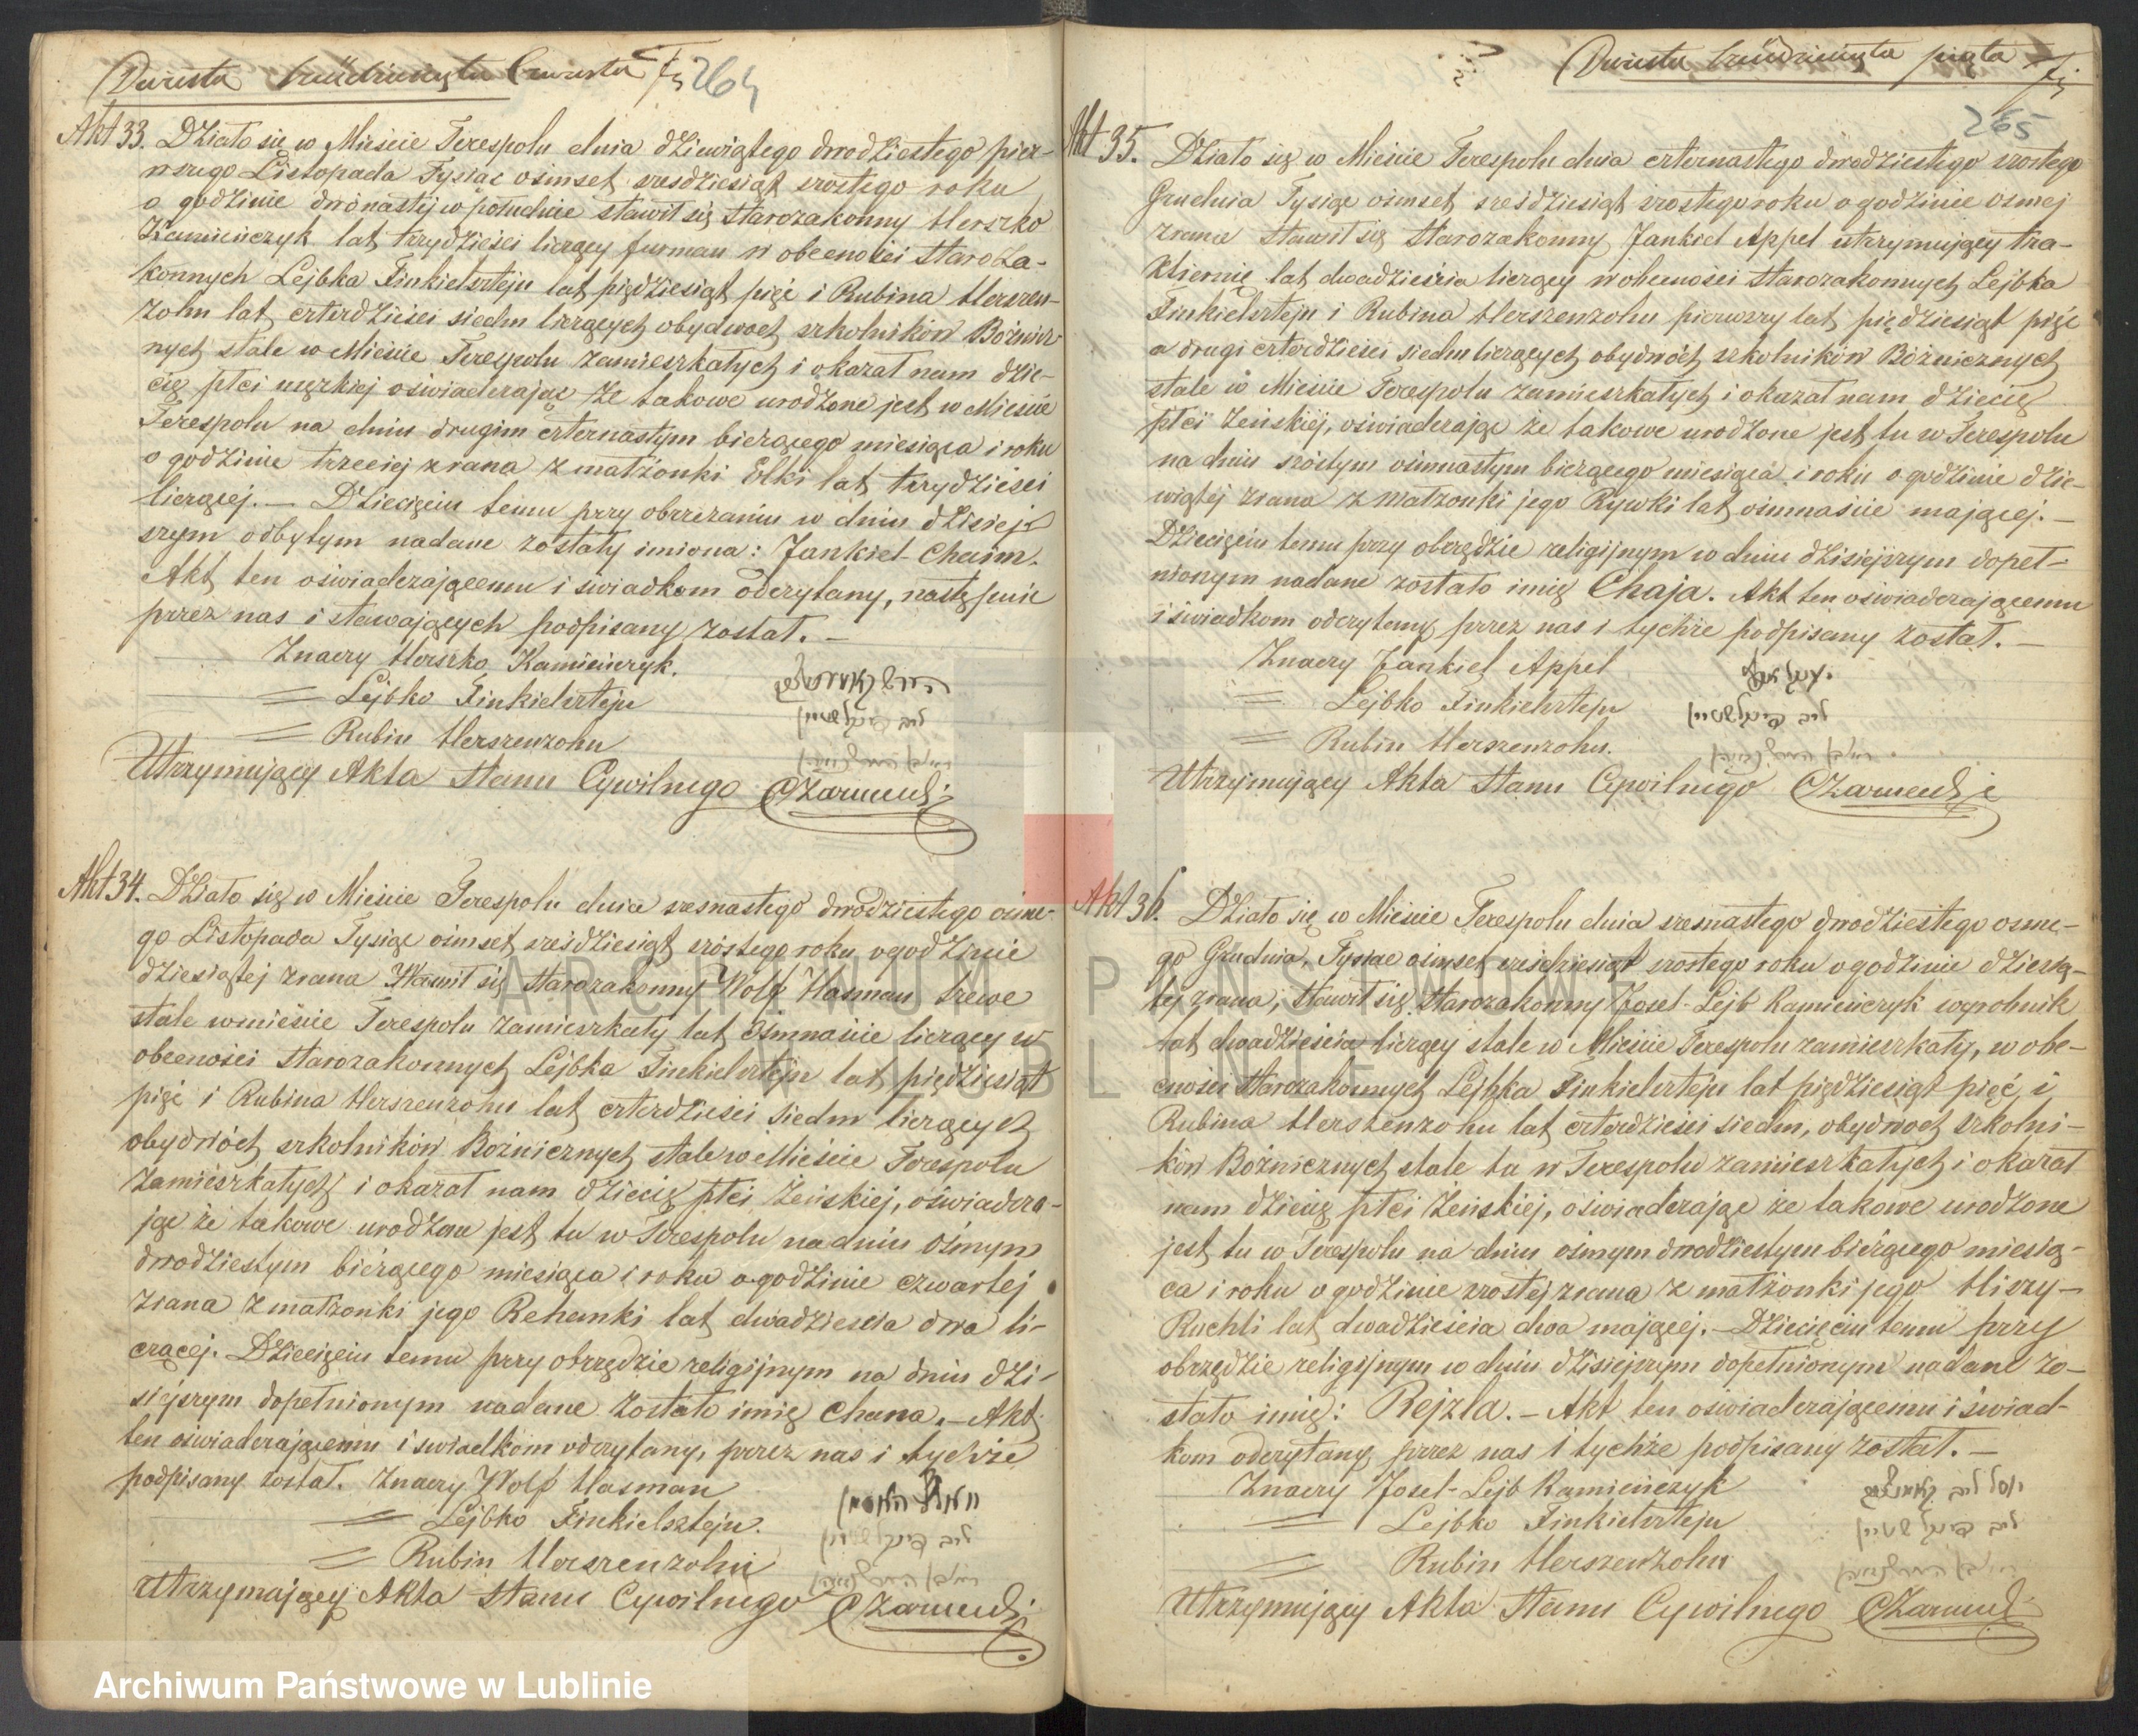 Dwiesta sześdziesiąta Czwarta
264
Akt 33. Działo się w Mieście Terespolu dnia dziewiątego dwodziestego pier-
wszego Listopada Tysiąc osimset sześdziesiąt szostego roku
o godzinie dwónastej w południe stawił się Starozakonny Herszko
Kamieńczyk lat trzydzieści liczący furman w obecności Staroza-
konnych Lejbka Finkielsztejn lat pięдziesiąt pięć i Rubina Herszen-
zohn lat czterdzieści siedm liczących obydwoch szkolników Bożnicz-
nych stale w Mieście Terespolu zamieszkałych i okazał nam dzie-
cię płci męzkiej oświadczając że takowe urodzone jest w Mieście
Terespolu na dniu drugim czternastym bieżącego miesiąca i roku
o godzinie trzeciej z rana z małżonki Elki lat trzydzieści
liczącej. — Dziecięciu temu przy obrzezaniu w dniu dzisiej-
szym odbytym nadane zostały imiona: Jankiel Chaim.
Akt ten oświadczającemu i świadkom odczytany, następnie
przez nas i stawających podpisany został. —
Znaczy Herszko Kamieńczyk.
= Lejbko Finkielsztejn ליב פינקלשטיין
= Rubin Herszenzohn
Utrzymujący Akta Stanu Cywilnego
Akt 34. Działo się w Mieście Terespolu dnia szesnastego dwodziestego osme-
go Listopada Tysiąc ośmset sześdziesiąt szóstego roku o godzinie
dziesiątej zrana Stawił się Starozakonny Wolf Hasman
stale w mieście Terespolu zamieszkały lat Osmnaście liczący w
obecności Starozakonnych Lejbka Finkielsztejn lat pięćdziesiąt
pięć i Rubina Herszenzohn lat czterdzieści siedm liczących
obydwóch szkolników Bożnicznych stale w Mieście Terespolu
zamieszkałych i okazał nam dziecię płci żeńskiej, oświadcza-
jąc że takowe urodzone jest tu w Terespolu na dniu ósmym
dwodziestym bieżącego miesiąca i roku o godzinie czwartej
zrana z małżonki jego Rehanki lat dwadzieścia dwa li-
czącej. Dziecięciu temu przy obrzędzie religijnym na dniu dzi-
siejszym dopełnionym nadane zostało imię Chana. — Akt
ten oświadczającemu i świadkom odczytany, przez nas i tychże
podpisany został. Znaczy Wolf Hasman
= Lejbko Finkielsztejn. ליב פינקלשטיין
= Rubin Herszenzohn
Utrzymujący Akta Stanu Cywilnego
Dwiesta sześdziesiąta piąta
265
Akt 35. Działo się w Mieście Terespolu dnia czternastego dwodziestego szostego
Grudnia Tysiąc osimset sześdziesiąt szostego roku o godzinie osmej
zrana stawił się Starozakonny Jankiel Appel utrzymujący tra-
ktiernię lat dwadzieścia liczący w obecności Starozakonnych Lejbka
Finkielsztejn i Rubina Herszenzohn pierwszy lat pięćdziesiąt pięć
a drugi czterdzieści siedm liczących obydwóch szkolników Bóżnicznych
stale w Mieście Terespolu zamieszkałych i okazał nam dziecię
płci żeńskiej, oświadczając że takowe urodzone jest tu w Terespolu
na dniu szóstym osimnastym bieżącego miesiąca i roku o godzinie dzie-
wiątej zrana z małżonki jego Rywki lat osimnaście mającej. —
Dziecięciu temu przy obrzędzie religijnym w dniu dzisiejszym dopeł-
nionym nadane zostało imię Chaja. Akt ten oświadczającemu
i świadkom odczytany przez nas i tychże podpisany został. —
Znaczy Jankiel Appel
= Lejbko Finkielsztejn ליב פינקלשטיין
= Rubin Herszenzohn.
Utrzymujący Akta Stanu Cywilnego
Akt 36. Działo się w Mieście Terespolu dnia szesnastego dwodziestego osme-
go Grudnia, Tysiąc osimset sześćdziesiąt szostego roku o godzinie dziesią-
tej zrana, stawił się Starozakonny Josel-Lejb Kamieńczyk wyrobnik
lat dwadzieścia liczący stale w Mieście Terespolu zamieszkały, w obe-
cności Starozakonnych Lejbka Finkielsztejn lat pięćdziesiąt pięć i
Rubina Herszenzohn lat czterdzieści siedm, obydwóch szkolni-
ków Bóżnicznych stale tu w Terespolu zamieszkałych i okazał
nam dziecię płci żeńskiej, oświadczając że takowe urodzone
jest tu w Terespolu na dniu ośmym dwodziestym bieżącego miesią-
ca i roku o godzinie szostej zrana z małżonki jego
Ruchli lat dwadzieścia dwa mającej. — Dziecięciu temu przy
obrzędzie religijnym w dniu dzisiejszym dopełnionym nadane zo-
stało imię: Rejzla. — Akt ten oświadczającemu i świad-
kom odczytany przez nas i tychże podpisany został. —
Znaczy Josel-Lejb Kamieńczyk
= Lejbko Finkielsztejn ליב פינקלשטיין
= Rubin Herszenzohn
Utrzymujący Akta Stanu Cywilnego
ARCHIWUM PAŃSTWOWE
W LUBLINIE
Archiwum Państwowe w Lublinie